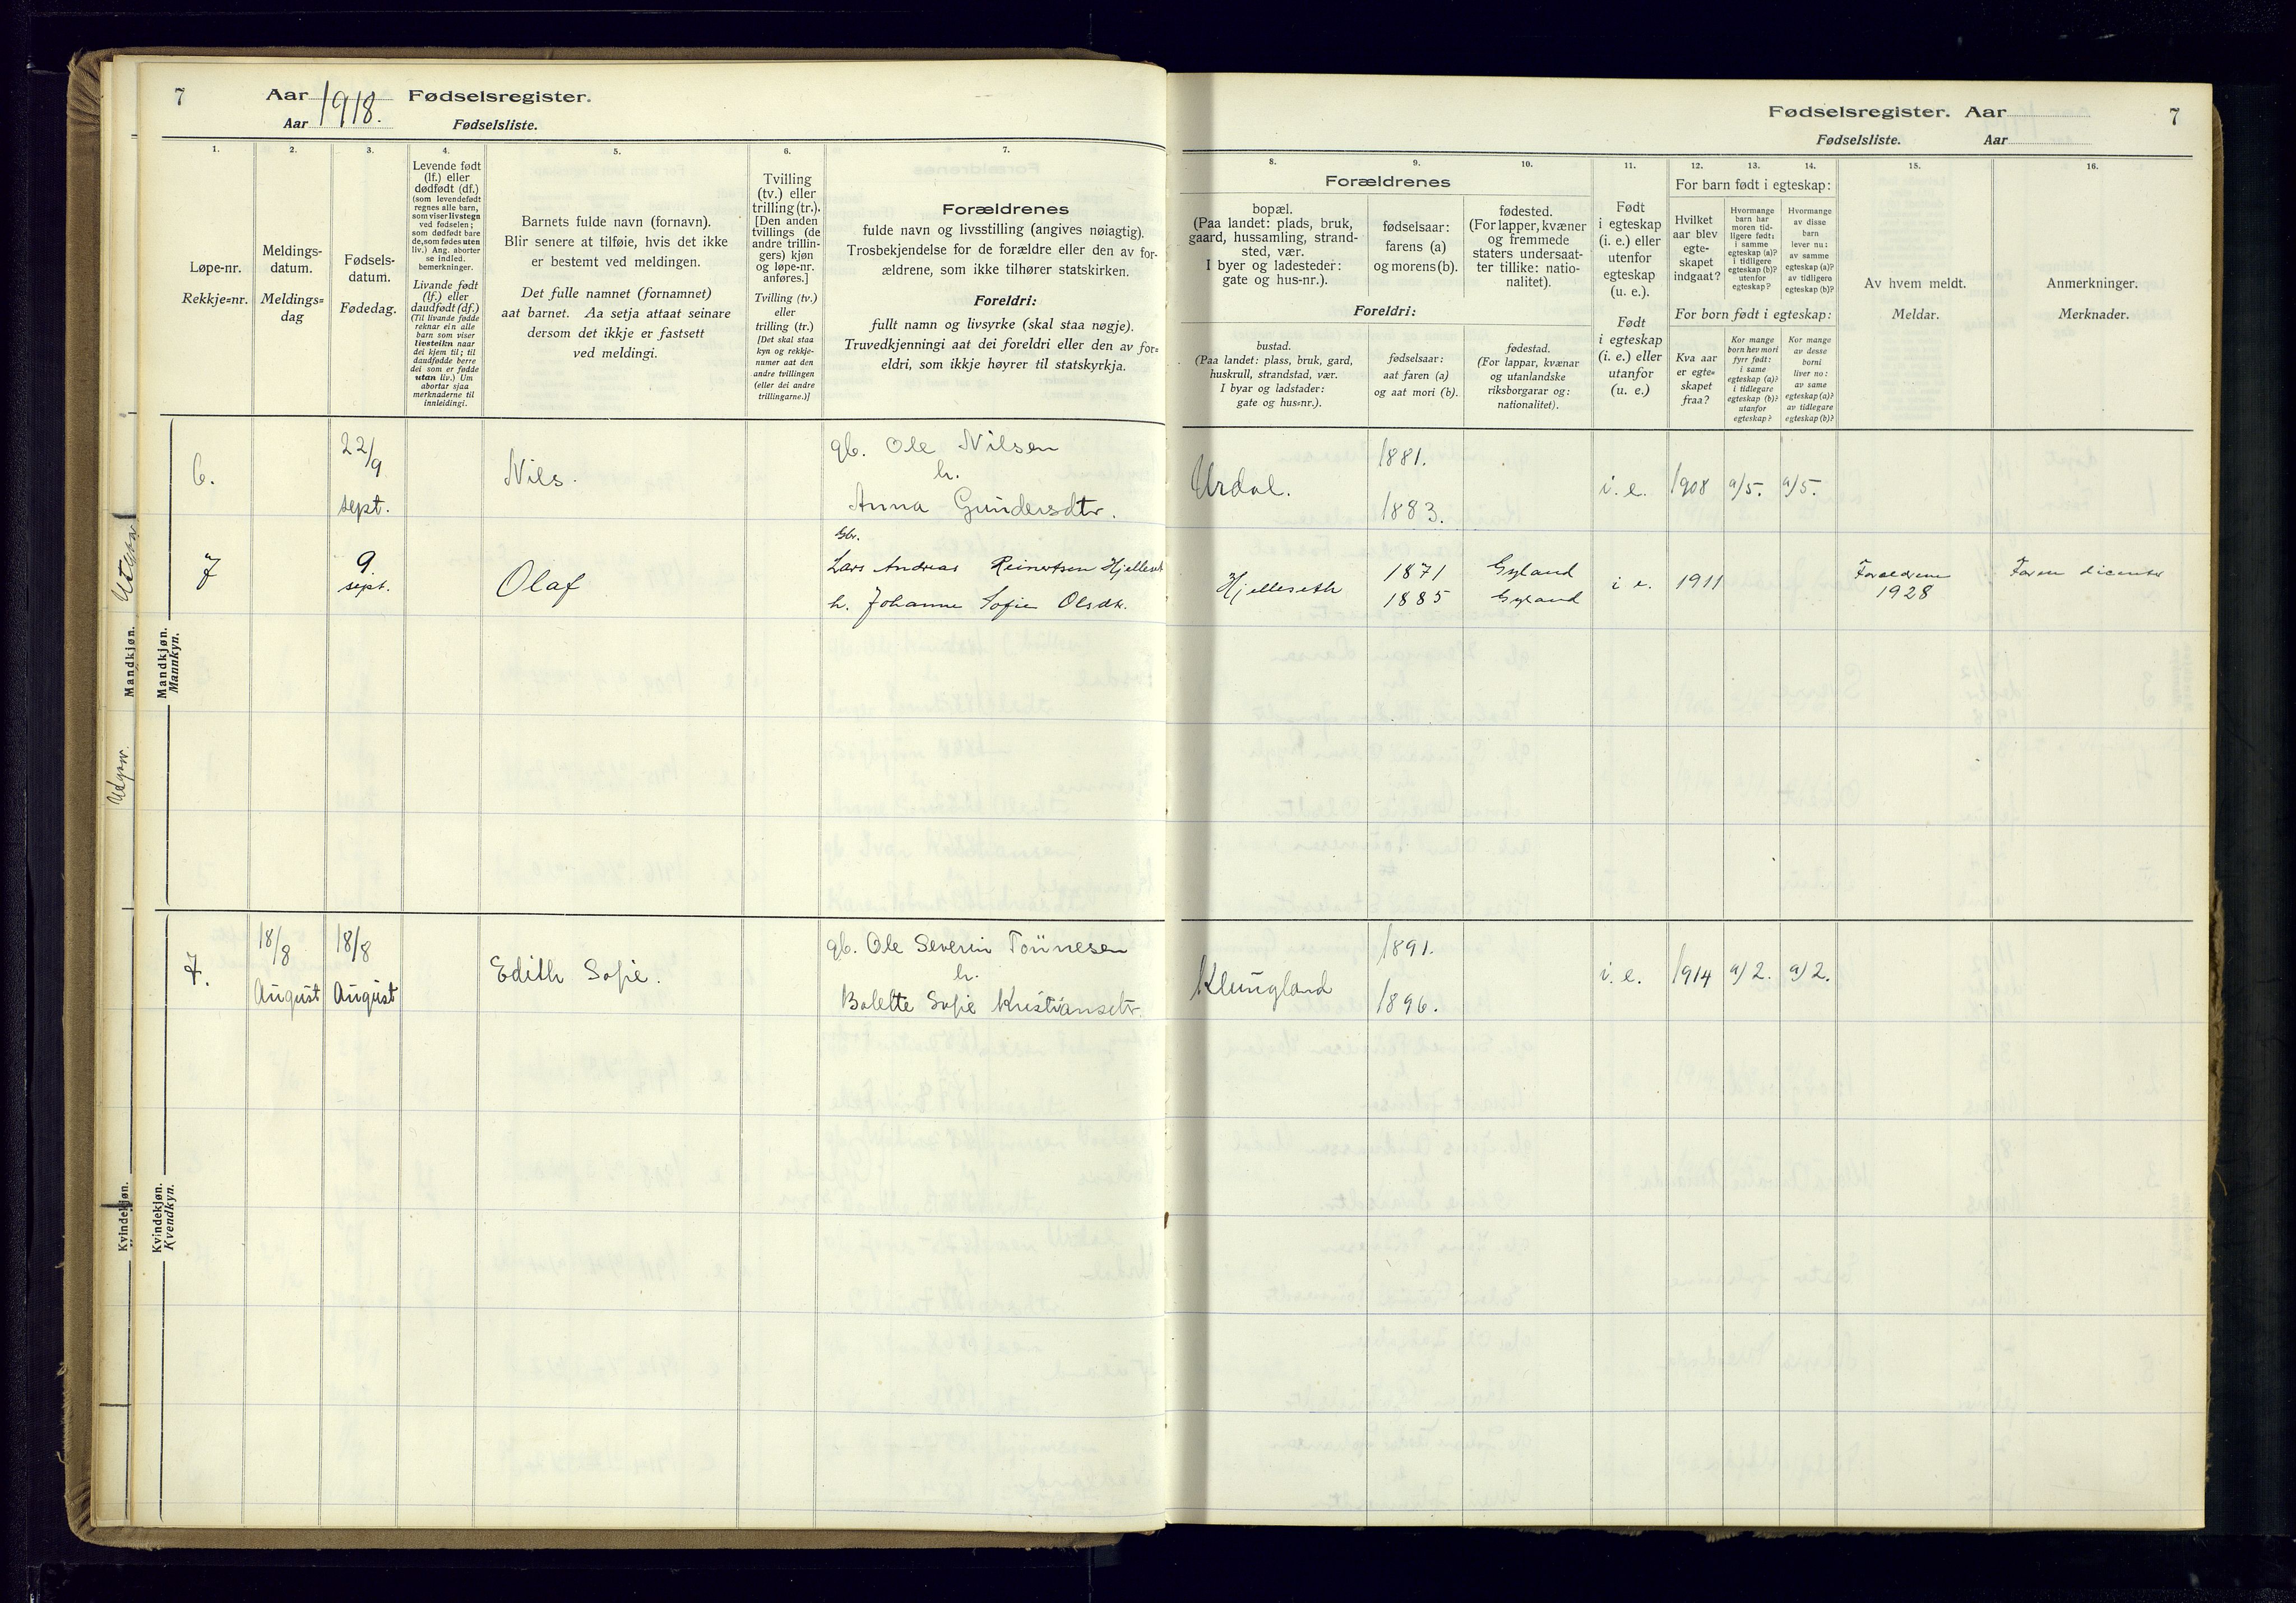 7
Aar 1918. Fødselsregister.
Aar Fødselsliste.
1.
2.
3.
4.
5.
6.
7.
Løpe-nr.
Rekkje=nr.
Meldings-
datum.
Meldings=
dag
Fødsels-
datum.
Fødedag.
Levende født
(lf.) eller
dødfødt (df.)
(som levendefødt
regnes alle barn,
som viser livstegn
ved fødselen;
som dødfødt bare
de, som fødes uten
liv.) Ang. aborter
se indled.
bemerkninger.
Livande født
(lf.) eller
daudfødt (df.)
(Til livande fødde
reknar ein alle
barn som viser
livsteikn naar
dei kjem til; til
daudfødde berre
dei som er fødde
utan liv.) Um
abortar sjaa
merknaderne til
innleidingi.
Barnets fulde navn (fornavn).
Blir senere at tilføie, hvis det ikke
er bestemt ved meldingen.
Det fulle namnet (fornamnet)
aat barnet. Aa setja attaat seinare
dersom det ikkje er fastsett
ved meldingi.
Tvilling
(tv.) eller
trilling (tr.).
[Den anden
tvillings (de
andre trillin-
gers) kjøn
og løpe-nr.
anføres.]
Tvilling (tv.)
eller
trilling (tr.)
[Det skal staa
kyn og rekkje-
numer aat den
andre tvillingen
(eller dei andre
trillingarne.)]
Forældrenes
fulde navn og livsstilling (angives nøiagtig).
Trosbekjendelse for de forældre eller den av for-
ældrene, som ikke tilhører statskirken.
Foreldri:
fullt namn og livsyrke (skal staa nøgje).
Truvedkjenningi aat dei foreldri eller den av for=
eldri, som ikkje høyrer til statskyrkja.
Mandkjøn.
Mannkyn.
6.
22/9
sept.
Nils.
gb. Ole Nilsen
h.
Anna Gundersdtr.
7
9.
sept.
Olaf
Gbr.
Lars Andreas Reinertsen Hjelleset
h. Johanne Sofie Olsdtr.
Kvindekjøn.
Kvendkyn.
7.
18/8
August
18/8
August
Edith Sofie.
gb. Ole Severin Tönnesen
h.
Bolette Sofie Kristiansdtr.
Mandkjøn.
Kvindekjøn.
Fødselsregister. Aar
7
Fødselsliste. Aar
8.
9.
10.
11.
12.
13.
14.
15.
16.
Forældrenes
bopæl.
(Paa landet: plads, bruk,
gaard, hussamling, strand-
sted, vær.
I byer og ladesteder:
gate og hus-nr.).
fødselsaar:
farens (a)
og morens (b).
fødested.
(For lapper, kvæner
og fremmede
staters undersaat-
ter tillike: natio-
nalitet).
Foreldri:
bustad.
(Paa landet: plass, bruk, gard,
huskrull, strandstad, vær.
I byar og ladstader:
gate og hus=nr.).
fødselsaar:
aat faren (a)
og aat mori (b).
fødestad.
(For lappar, kvænar
og utanlandske
riksborgarar og:
nationalitet).
Født
i egteskap
(i. e.) eller
utenfor
egteskap
(u. e.).
Født
i egteskap
(i. e.) eller
utanfor
egteskap
(u. e.)
For barn født i egteskap:
Hvilket
aar blev
egte-
skapet
indgaat?
Hvormange
barn har
moren tid-
ligere født:
i samme
egteskap (a)?
i tidligere
egteskap (b)?
utenfor
egteskap?
Hvormange
av disse
barn
lever nu:
av samme
egteskap (a)?
av tidligere
egteskap (b)?
For born født i egteskap:
Kva aar
er egte=
skapet
fraa?
Kor mange
born hev mori
fyrr født:
i same
egteskap (a)?
i tidlegare
egteskap (b)?
utanfor
egteskap?
Kor mange
av desse
borni
liver no:
av same
egteskap (a)?
av tidlegare
egteskap (b)?
Av hvem meldt.
Meldar.
Anmerkninger.
Merknader.
Urdal.
1881.
1883.
i. e.
1908
a/5.
a/5.
Hjelleseth
1871
1885
Gyland
Gyland
i e.
1911
Foreldrene
1928
Faren
Klungland
1891.
1896.
i. e.
1914
a/2.
a/2.